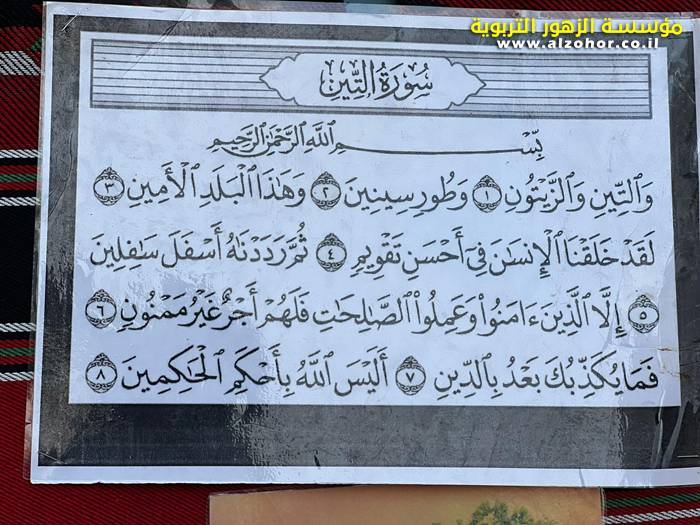 مؤسسة الزهور التربوية
www.alzohor.co.il
سُورَةُ التِّينِ
بِسْمِ اللَّهِ الرَّحْمَٰنِ الرَّحِيمِ
وَالتِّينِ وَالزَّيْتُونِ ١ وَطُورِ سِينِينَ ٢ وَهَٰذَا الْبَلَدِ الْأَمِينِ ٣
لَقَدْ خَلَقْنَا الْإِنسَٰنَ فِي أَحْسَنِ تَقْوِيمٍ ٤ ثُمَّ رَدَدْنَٰهُ أَسْفَلَ سَٰفِلِينَ
٥ إِلَّا الَّذِينَ ءَامَنُوا وَعَمِلُوا الصَّٰلِحَٰتِ فَلَهُمْ أَجْرٌ غَيْرُ مَمْنُونٍ ٦
فَمَا يُكَذِّبُكَ بَعْدُ بِالدِّينِ ٧ أَلَيْسَ اللَّهُ بِأَحْكَمِ الْحَٰكِمِينَ ٨